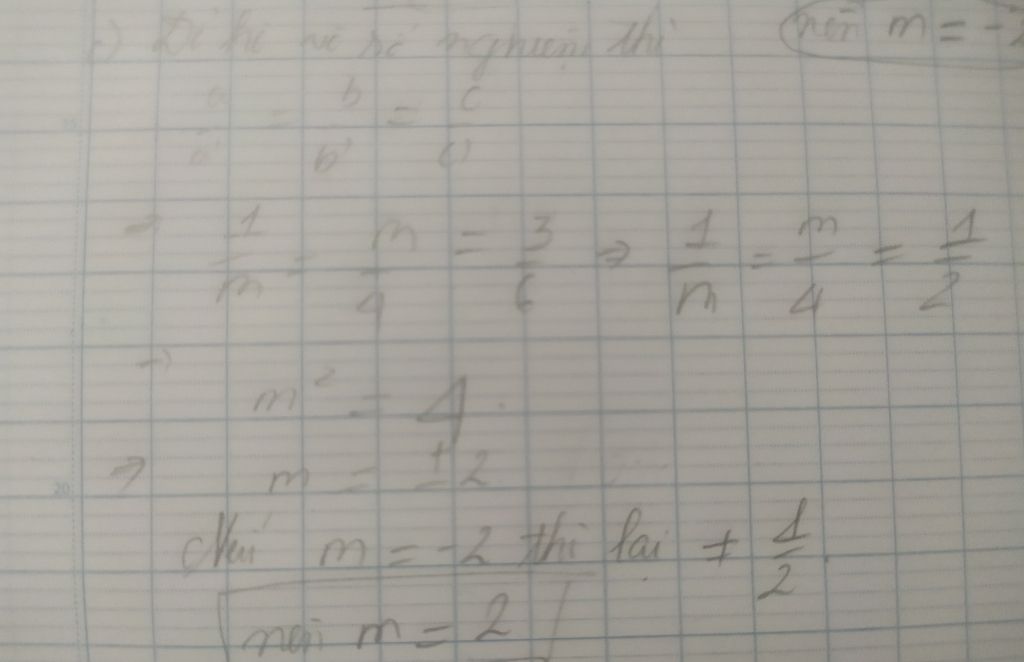 c) Để hệ vô số nghiệm thì
nên m = -2
a/a' = b/b' = c/c'
⇒ 1/m = m/4 = 3/6 ⇒ 1/m = m/4 = 1/2
⇒ m² = 4
⇒ m = ±2
Nếu m = -2 thì lại ≠ 1/2.
nên m = 2